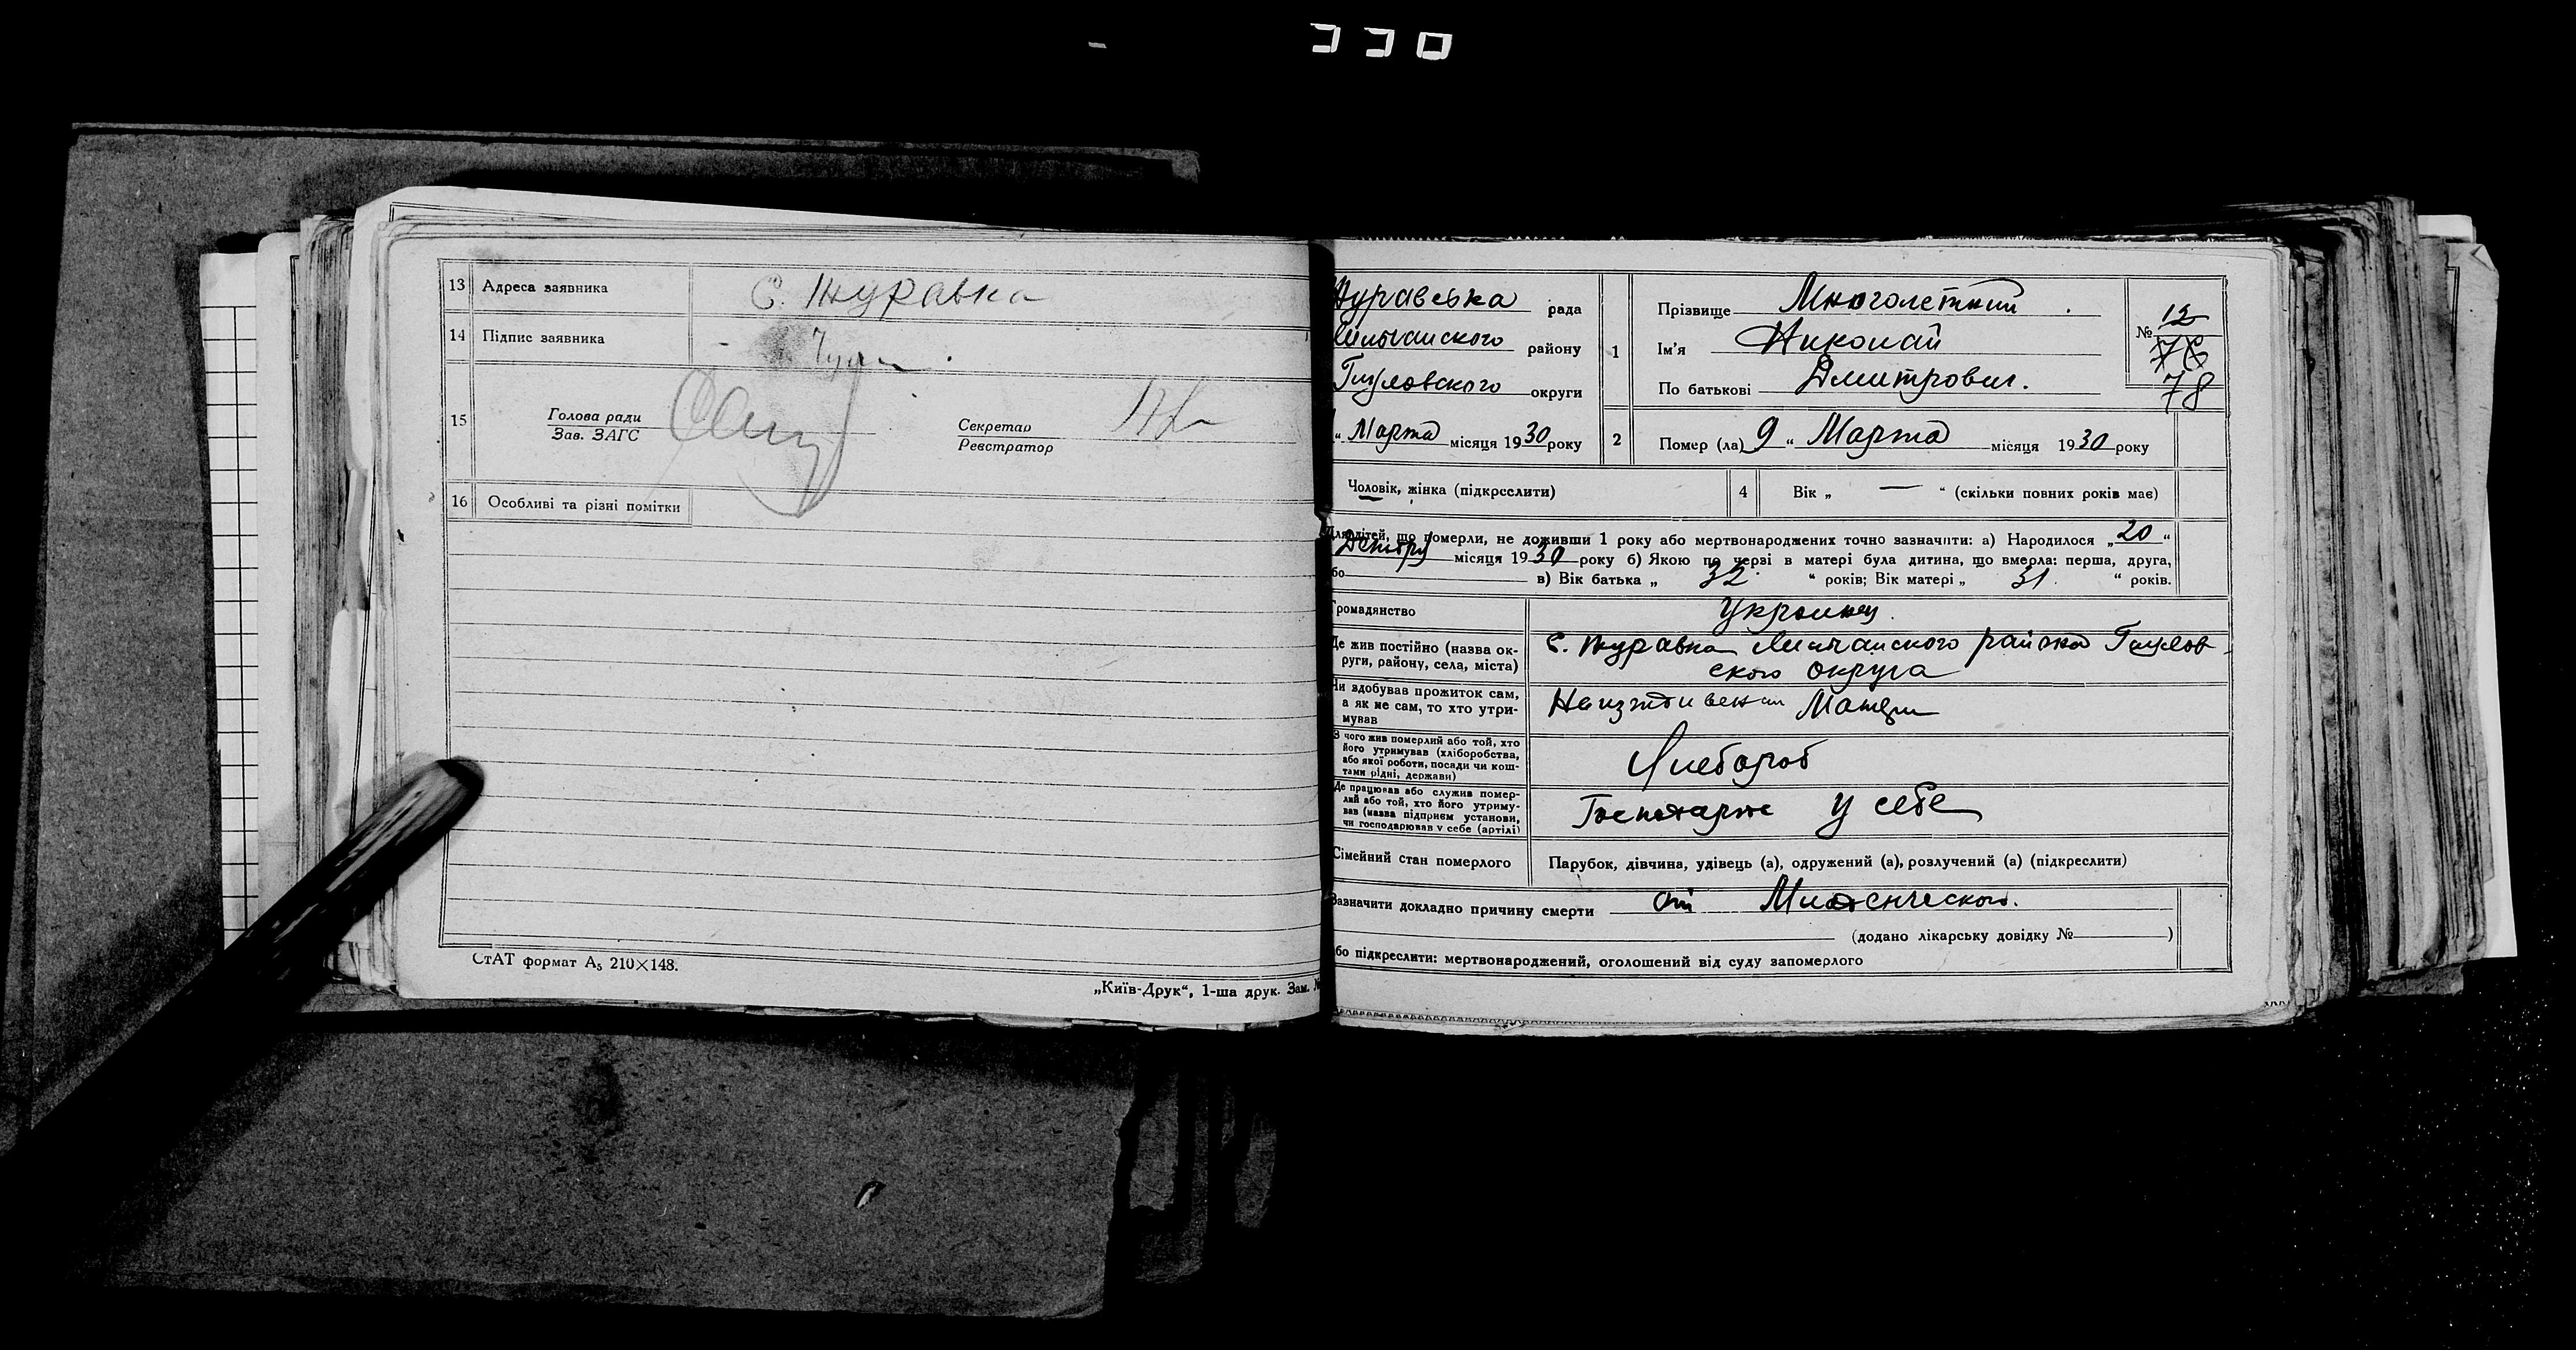 13 Адреса заявника С. Журавка
14 Підпис заявника
15 Голова ради
Зав. ЗАГС
Секретар
Реєстратор
16 Особливі та різні помітки
СтАТ формат А5 210×148.
„Київ-Друк“, 1-ша друк. Зам. №
Журавська рада
району
Глуховского округи
“ Марта місяця 1930 року
1 Прізвище Многолетний
Ім'я Николай
По батькові Дмитрович.
№ 12
78
2 Помер (ла) 9 “ Марта місяця 1930 року
Чоловік, жінка (підкреслити)
4 Вік „ — “ (скільки повних років має)
Для дітей, що померли, не доживши 1 року або мертвонароджених точно зазначити: а) Народилося „20“
місяця 1930 року б) Якою по черзі в матері була дитина, що вмерла: перша, друга,
бо в) Вік батька „ 32 “ років; Вік матері „ 31 “ років.
Громадянство Украинец.
Де жив постійно (назва ок-
руги, району, села, міста)
С. Журавка района Глухов-
ского округа
Чи здобував прожиток сам,
а як не сам, то хто утри-
мував
На иждивении Матери
З чого жив померлий або той, хто
його утримував (хліборобства,
або якої роботи, посади чи кош-
тами рідні, держави)
Хлебороб
Де працював або служив помер-
лий або той, хто його утриму-
вав (назва підприєм установи,
чи господарював у себе (артілі)
у себе
Сімейний стан померлого Парубок, дівчина, удівець (а), одружений (а), розлучений (а) (підкреслити)
Зазначити докладно причину смерти от
(додано лікарську довідку № )
бо підкреслити: мертвонароджений, оголошений від суду запомерлого